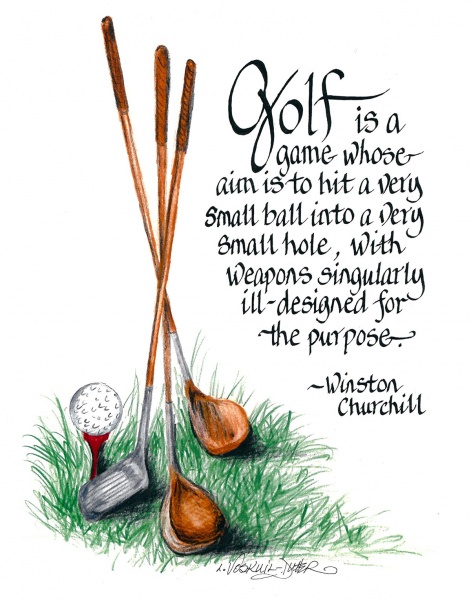 Golf is a
game whose
aim is to hit a very
small ball into a very
small hole, with
weapons singularly
ill-designed for
the purpose.
~Winston
Churchill